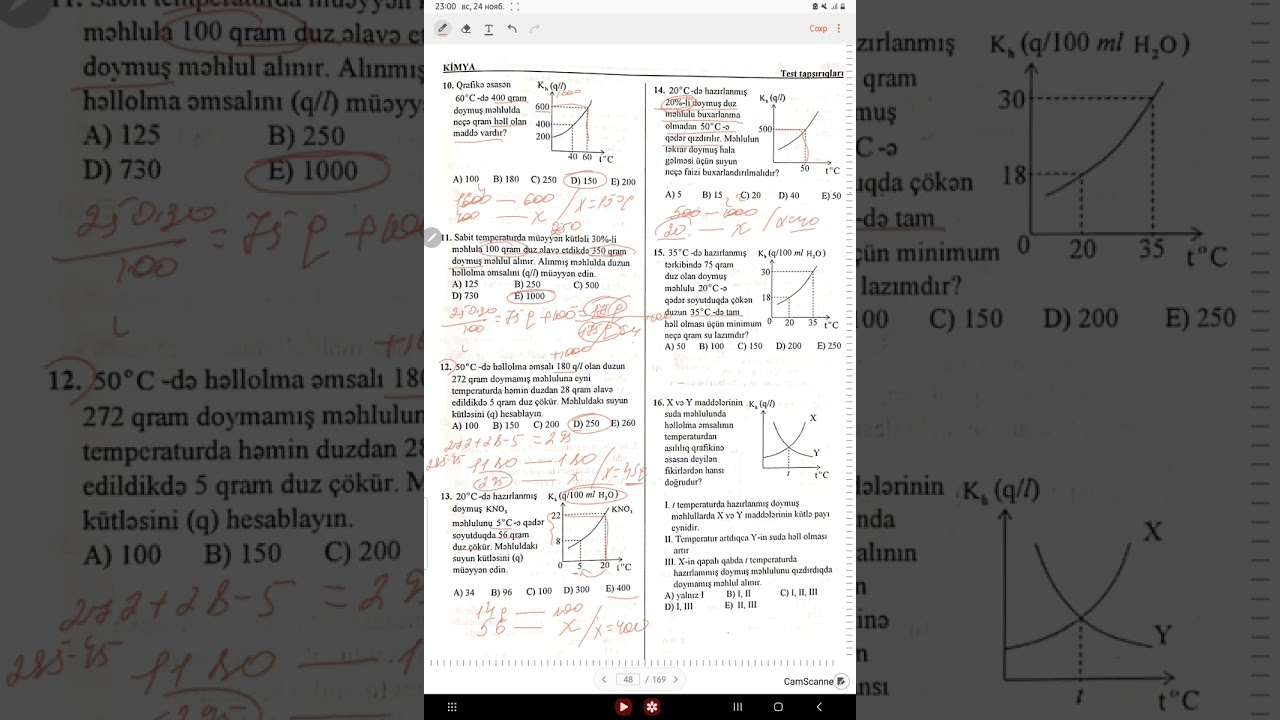 23:00 вс, 24 нояб.
Сохр
KİMYA
Test tapşırıqları
10. Qrafikə əsasən
60°C -də 400 qram
doymuş məhlulda
neçə qram həll olan
maddə vardır?
K_h (q/l)
600
400
200
40 60 t°C
A) 100 B) 180 C) 250 D) 150 E) 200
1600 — 600
400 — x / x=150
11. Sabit temperaturda müəyyən kütləli 30%-li
məhlula 100 qram duz əlavə etdikdə 350 qram
doymuş məhlul alınır. Alınmış məhlulda duzun
həllolma əmsalını (q/l) müəyyən edin.
A) 125 B) 250 C) 500
D) 730 E) 1000
12. 50°C -də həllolma əmsalı 180 q/l olan duzun
272 qram doymamış məhluluna eyni
temperaturda həmin duzdan 28 qram əlavə
edildikdə 5 qram duz çökür. Məhluldakı suyun
kütləsini (q) hesablayın.
A) 100 B) 150 C) 200 D) 250 E) 260
272+28-5 = 295
13. 20°C -də hazırlanmış
doymuş KNO₃
məhlulunu 5°C -ə qədər
soyutduqda 56 qram
duz çökür. Məhluldakı
suyun kütləsini (q)
müəyyən edin.
K_h (q/100 ml H₂O)
22
KNO₃
8
0 5 20 t°C
A) 34 B) 96 C) 100 D) 300 E) 400
14 — 100
56 — x / x=400
14. 20°C -də hazırlanmış
20%-li doymuş duz
məhlulu buxarlanma
olmadan 50°C -ə
qədər qızdırılır. Məhlulun
təkrar doymuş hala
gəlməsi üçün suyun
neçə faizi buxarlandırılmalıdır?
K_h (q/l)
500
50 t°C
A) 5 B) 15 C) 20 D) 40 E) 50
500 — 1000
20 — x / x=40
15. 35°C -də hazırlanmış
tərkibində 75 qram
duz olan doymuş
məhlulu 20°C -ə
qədər soyutduqda çökən
duzun 35°C -də tam
həll olması üçün minimum
neçə qram su lazımdır?
K_h (q/100 ml H₂O)
30
18
0 20 35 t°C
A) 50 B) 100 C) 150 D) 200 E) 250
16. X və Y maddələrinin
suda məhlulunda
həllolma əmsalının
temperaturdan
asılılıq qrafikinə
əsasən deyilən
fikirlərdən hansı
doğrudur?
K_h (q/l)
X
Y
t t°C
I. t temperaturda hazırlanmış doymuş
məhlullarda X və Y maddələrinin kütlə payı
eynidir.
II. Temperatur artdıqca Y-in suda həll olması
artır
III. X-in qapalı qabda t temperaturda
hazırlanmış doymuş məhlulunu qızdırdıqda
doymamış məhlul alınır.
A) yalnız I B) I, II C) I, II, III
D) I, III E) II, III
48 / 169
CamScanne